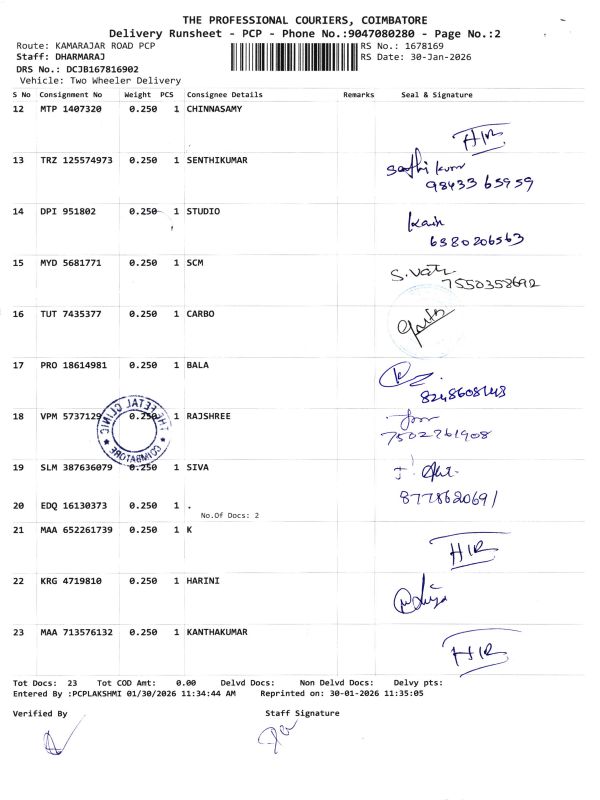 THE PROFESSIONAL COURIERS, COIMBATORE
Delivery Runsheet - PCP - Phone No.:9047080280 - Page No.:2
Route: KAMARAJAR ROAD PCP RS No.: 1678169
Staff: DHARMARAJ RS Date: 30-Jan-2026
DRS No.: DCJB167816902
Vehicle: Two Wheeler Delivery
S No Consignment No Weight PCS Consignee Details Remarks Seal & Signature
12 MTP 1407320 0.250 1 CHINNASAMY
H/R
13 TRZ 125574973 0.250 1 SENTHIKUMAR
98433 65959
14 DPI 951802 0.250 1 STUDIO
6380206563
15 MYD 5681771 0.250 1 SCM
7550358692
16 TUT 7435377 0.250 1 CARBO
17 PRO 18614981 0.250 1 BALA
18 VPM 5737129 0.250 1 RAJSHREE
THE FETAL CLINIC
COIMBATORE
7502761908
19 SLM 387636079 0.250 1 SIVA
8778620691
20 EDQ 16130373 0.250 1 .
No.Of Docs: 2
21 MAA 652261739 0.250 1 K
H/R
22 KRG 4719810 0.250 1 HARINI
23 MAA 713576132 0.250 1 KANTHAKUMAR
H/R
Tot Docs: 23 Tot COD Amt: 0.00 Delvd Docs: Non Delvd Docs: Delvy pts:
Entered By :PCPLAKSHMI 01/30/2026 11:34:44 AM Reprinted on: 30-01-2026 11:35:05
Verified By Staff Signature